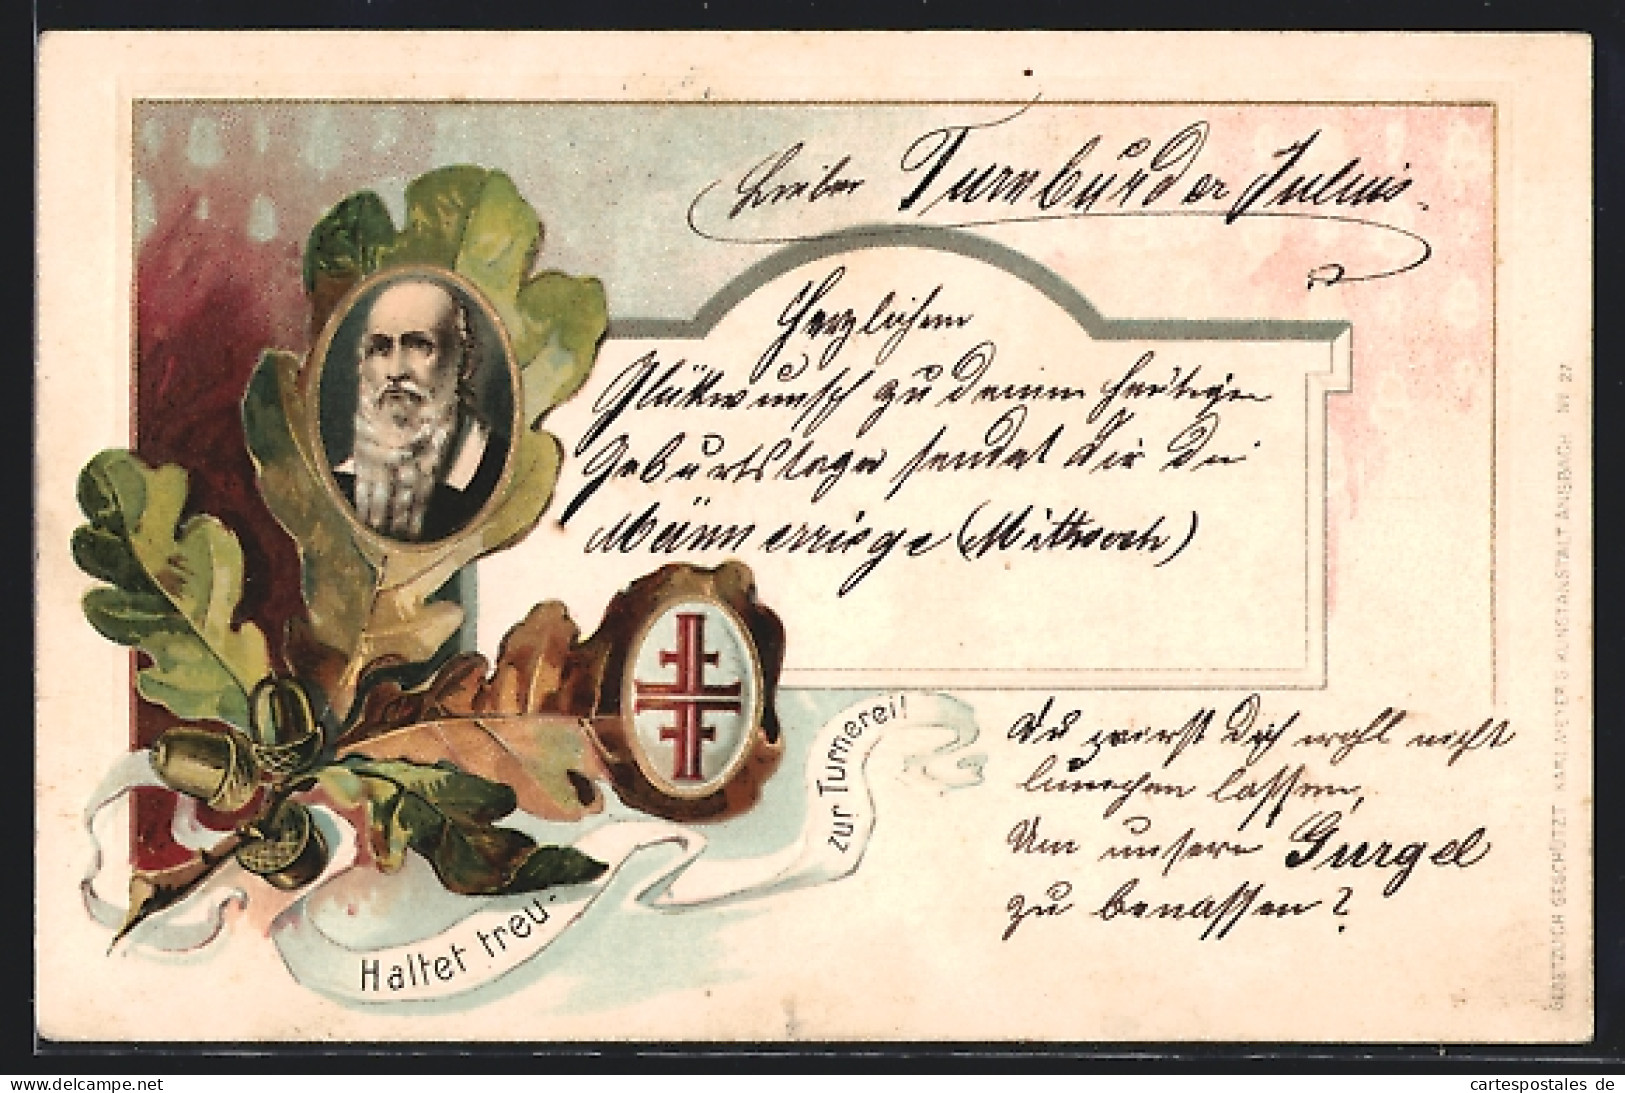 Lieber Turnbruder Julius.
Herzlichen
Glückwunsch zu Deinem heutigen
Geburtstage sendet Dir die
Männerriege (Mittwoch)
Du wirst Dich wohl nicht
lumpen lassen,
Um unsere Gurgel
zu benassen?
Haltet treu-
zur Turnerei!
GESETZLICH GESCHÜTZT KARL MEYER'S KUNSTANSTALT ANSBACH № 27
delcampe.net
cartespostales de